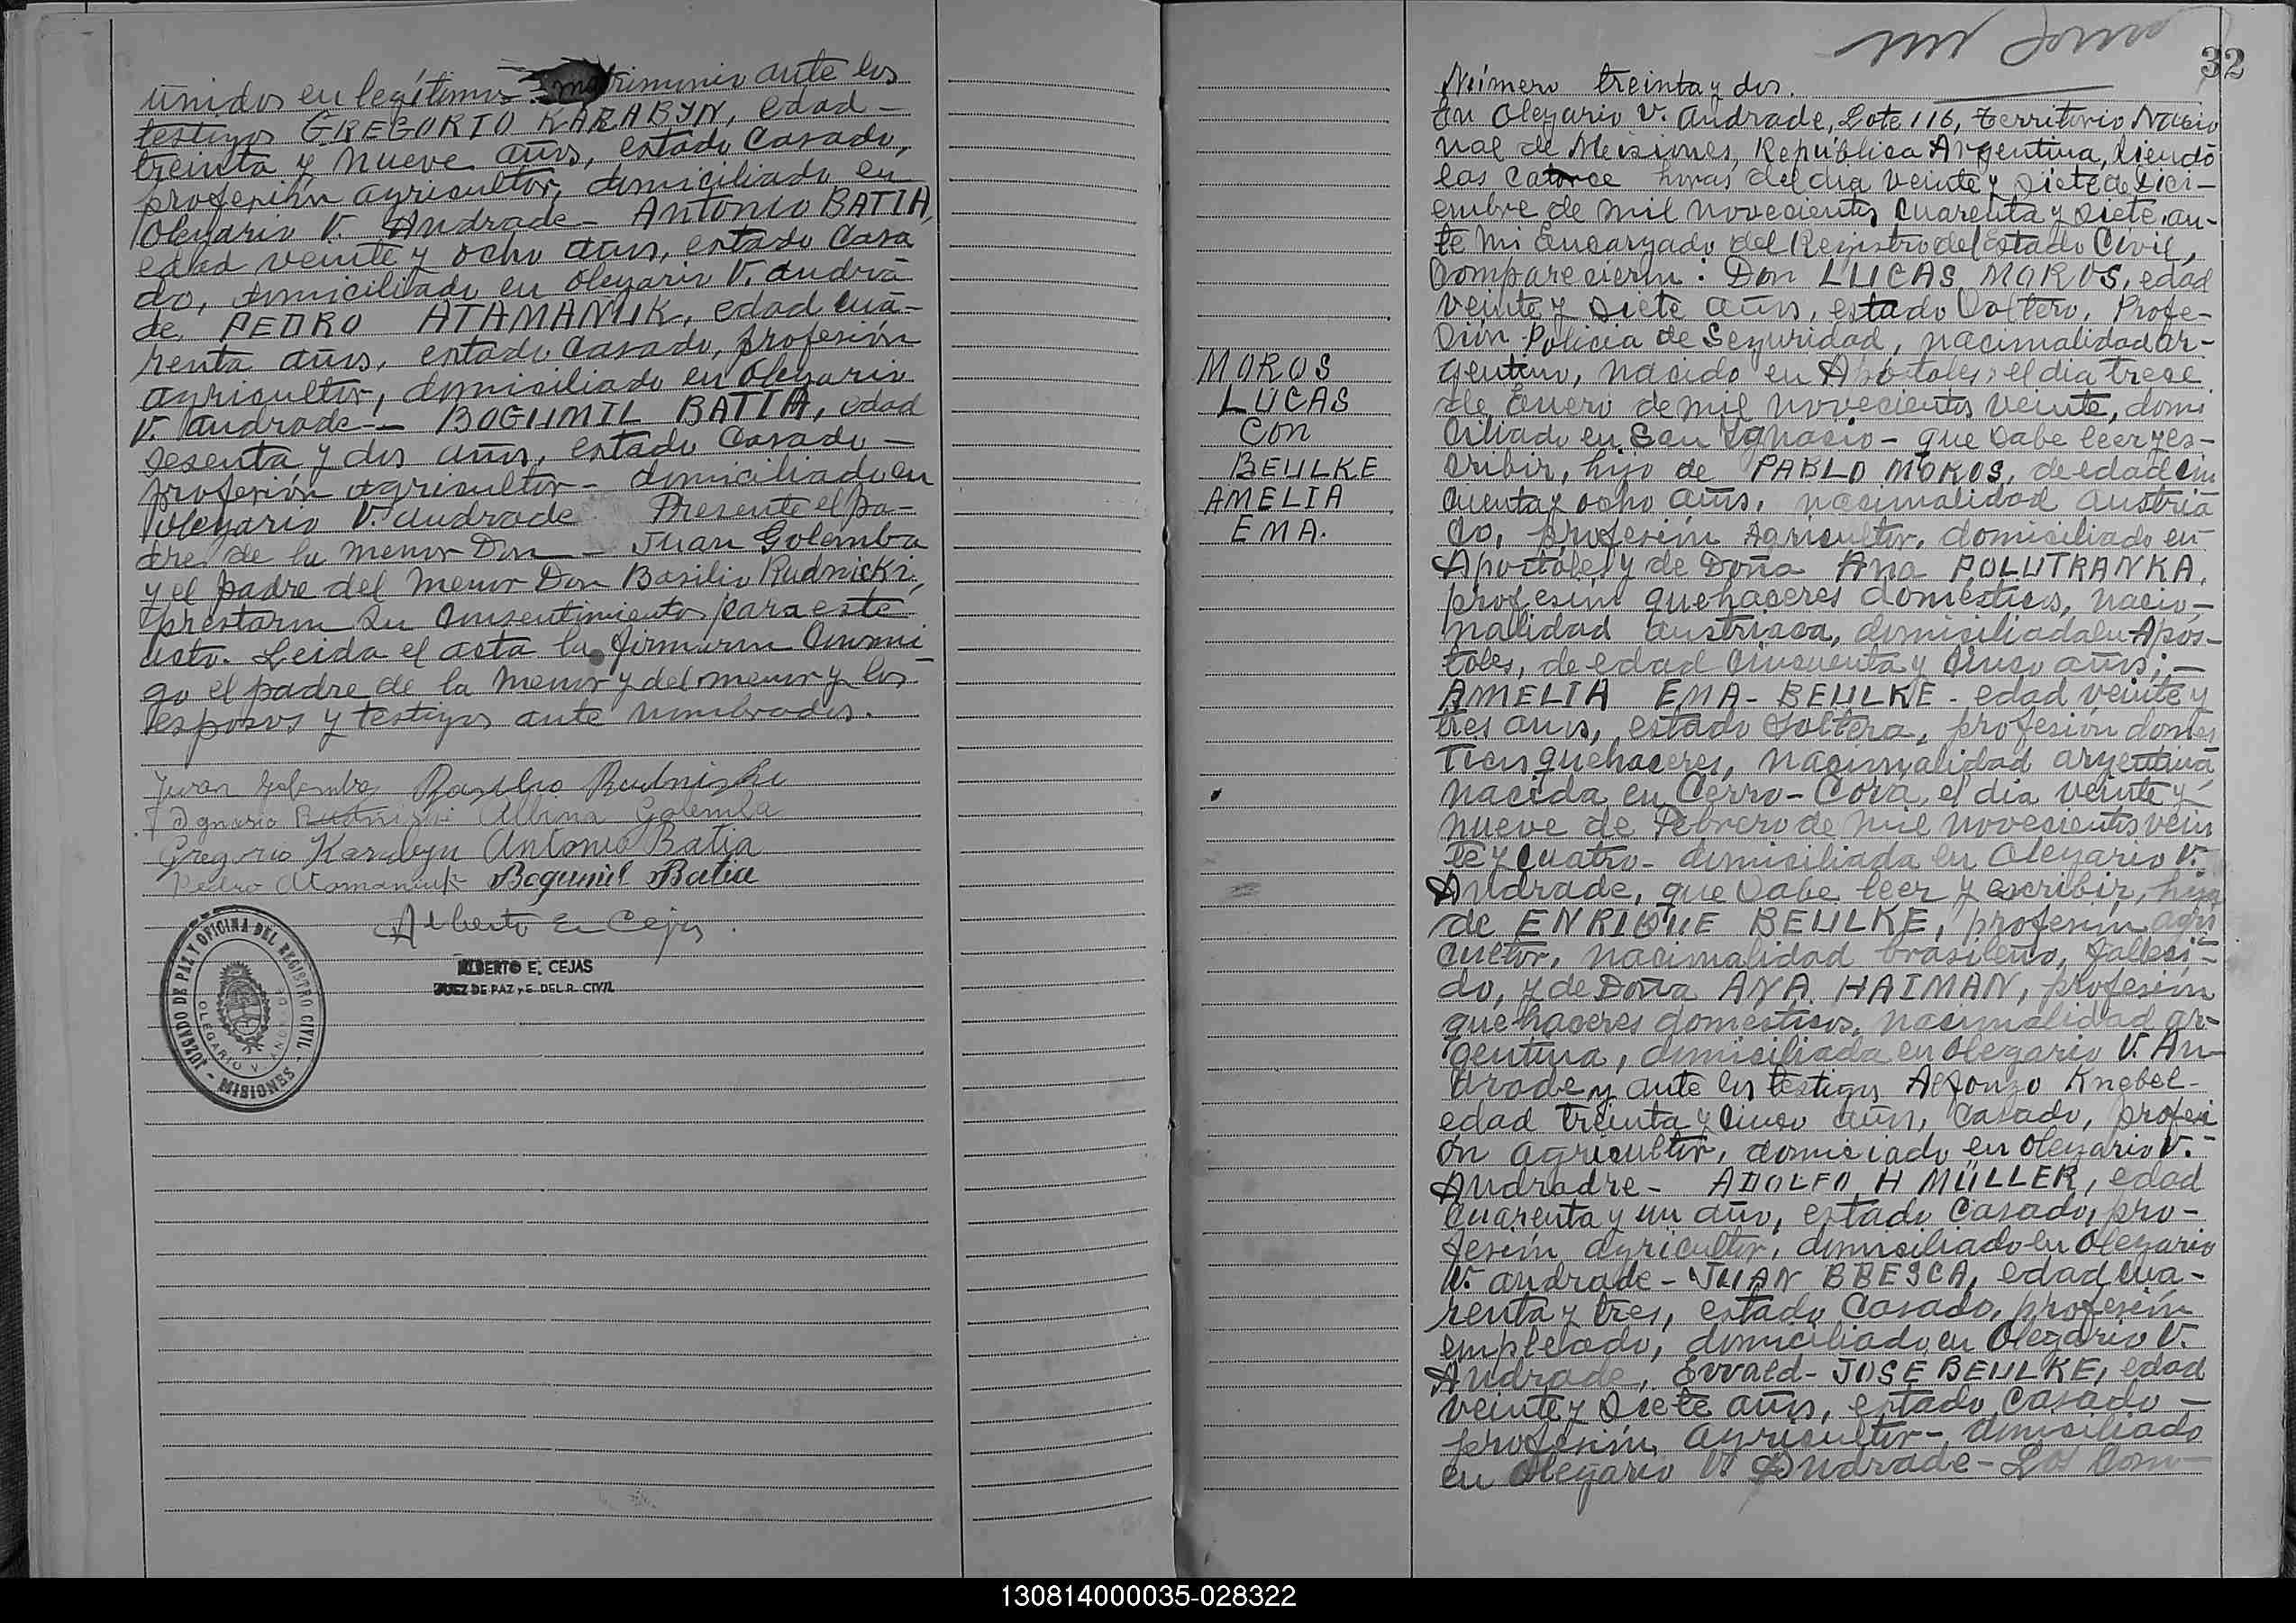 unidos en legítimo matrimonio ante los
testigos GREGORIO KARABYN, edad -
treinta y nueve años, estado Casado,
profesión agricultor, domiciliado en
Olegario V. Andrade - ANTONIO BATIA,
edad veinte y ocho años, estado Casa
do, domiciliado en Olegario V. Andra
de, PEDRO ATAMANIUK, edad cua-
renta años, estado Casado, profesión
agricultor, domiciliado en Olegario
V. Andrade - BOGUMIL BATIA, edad
sesenta y dos años, estado Casado -
profesión agricultor - domiciliado en
Olegario V. Andrade Presente el pa-
dre de la menor Don - Juan Golemba
y el padre del menor Don Basilio Rudnicki,
prestaron su consentimiento para este
acto. Leida el acta la firmaron Conmi
go el padre de la menor y del menor y los
esposos y testigos ante nombrados.
Juan Golemba Basilio Rudniski
Ignacio Albina Golemba
Gregorio Karabyn Antonio Batia
Pedro Atamaniuk Bogumil Batia
Alberto E. Cejas.
ALBERTO E. CEJAS
JUEZ DE PAZ y E. DEL R. CIVIL
JUZGADO DE PAZ Y OFICINA DEL REGISTRO CIVIL - MISIONES -
OLEGARIO V. ANDRADE
MOROS
LUCAS
CON
BEULKE
AMELIA
EMA.
32
Número treinta y dos.
En Olegario V. Andrade, Lote 116, Territorio Nacio
nal de Misiones, República Argentina, siendo
las catorce horas del dia veinte y siete de Dici-
embre de mil novecientos cuarenta y siete, an-
te mi Encargado del Registro del Estado Civil,
Comparecieron: Don LUCAS MOROS, edad
veinte y siete años, estado Soltero, Profe-
sión Policia de Seguridad, nacionalidad ar-
gentino, nacido en Apóstoles, el dia trece
de Enero de mil novecientos veinte, domi
ciliado en San Ignacio - que sabe leer y es-
cribir, hijo de PABLO MOROS, de edad cin
cuenta y ocho años, nacionalidad austria
co, profesión Agricultor, domiciliado en
Apostoles y de Doña Ana POLUTRANKA,
profesión quehaceres domésticos, nacio-
nalidad austriaca, domiciliada en Apos-
toles, de edad cincuenta y cinco años; -
AMELIA EMA - BEULKE - edad veinte y
tres años, estado Soltera, profesion domes
ticos quehaceres, nacionalidad argentina
nacida en Cerro-Cora, el dia veinte y
nueve de Febrero de mil novecientos vein
te y cuatro - domiciliada en Olegario V.
Andrade, que sabe leer y escribir, hija
de ENRIQUE BEULKE, profesión agri
cultor, nacionalidad brasileño, falleci-
do, y de Doña ANA HAIMAN, profesión
quehaceres domesticos, nacionalidad ar-
gentina, domiciliada en Olegario V. An-
drade y ante los testigos Alfonzo Knebel -
edad treinta y cinco años, casado, profesi
ón agricultor, domiciado en Olegario V.
Andradre - ADOLFO H MÜLLER, edad
cuarenta y un año, estado Casado, pro-
fesión agricultor, domiciliado en Olegario
V. andrade - JUAN BBESCA, edad cua-
renta y tres, estado Casado, profesión
empleado, domiciliado en Olegario V.
Andrade, Ewald - JOSE BEULKE, edad
veinte y siete años, estado Casado -
profesión agricultor - domiciliado
en Olegario V. Andrade - Los Com-
130814000035-028322